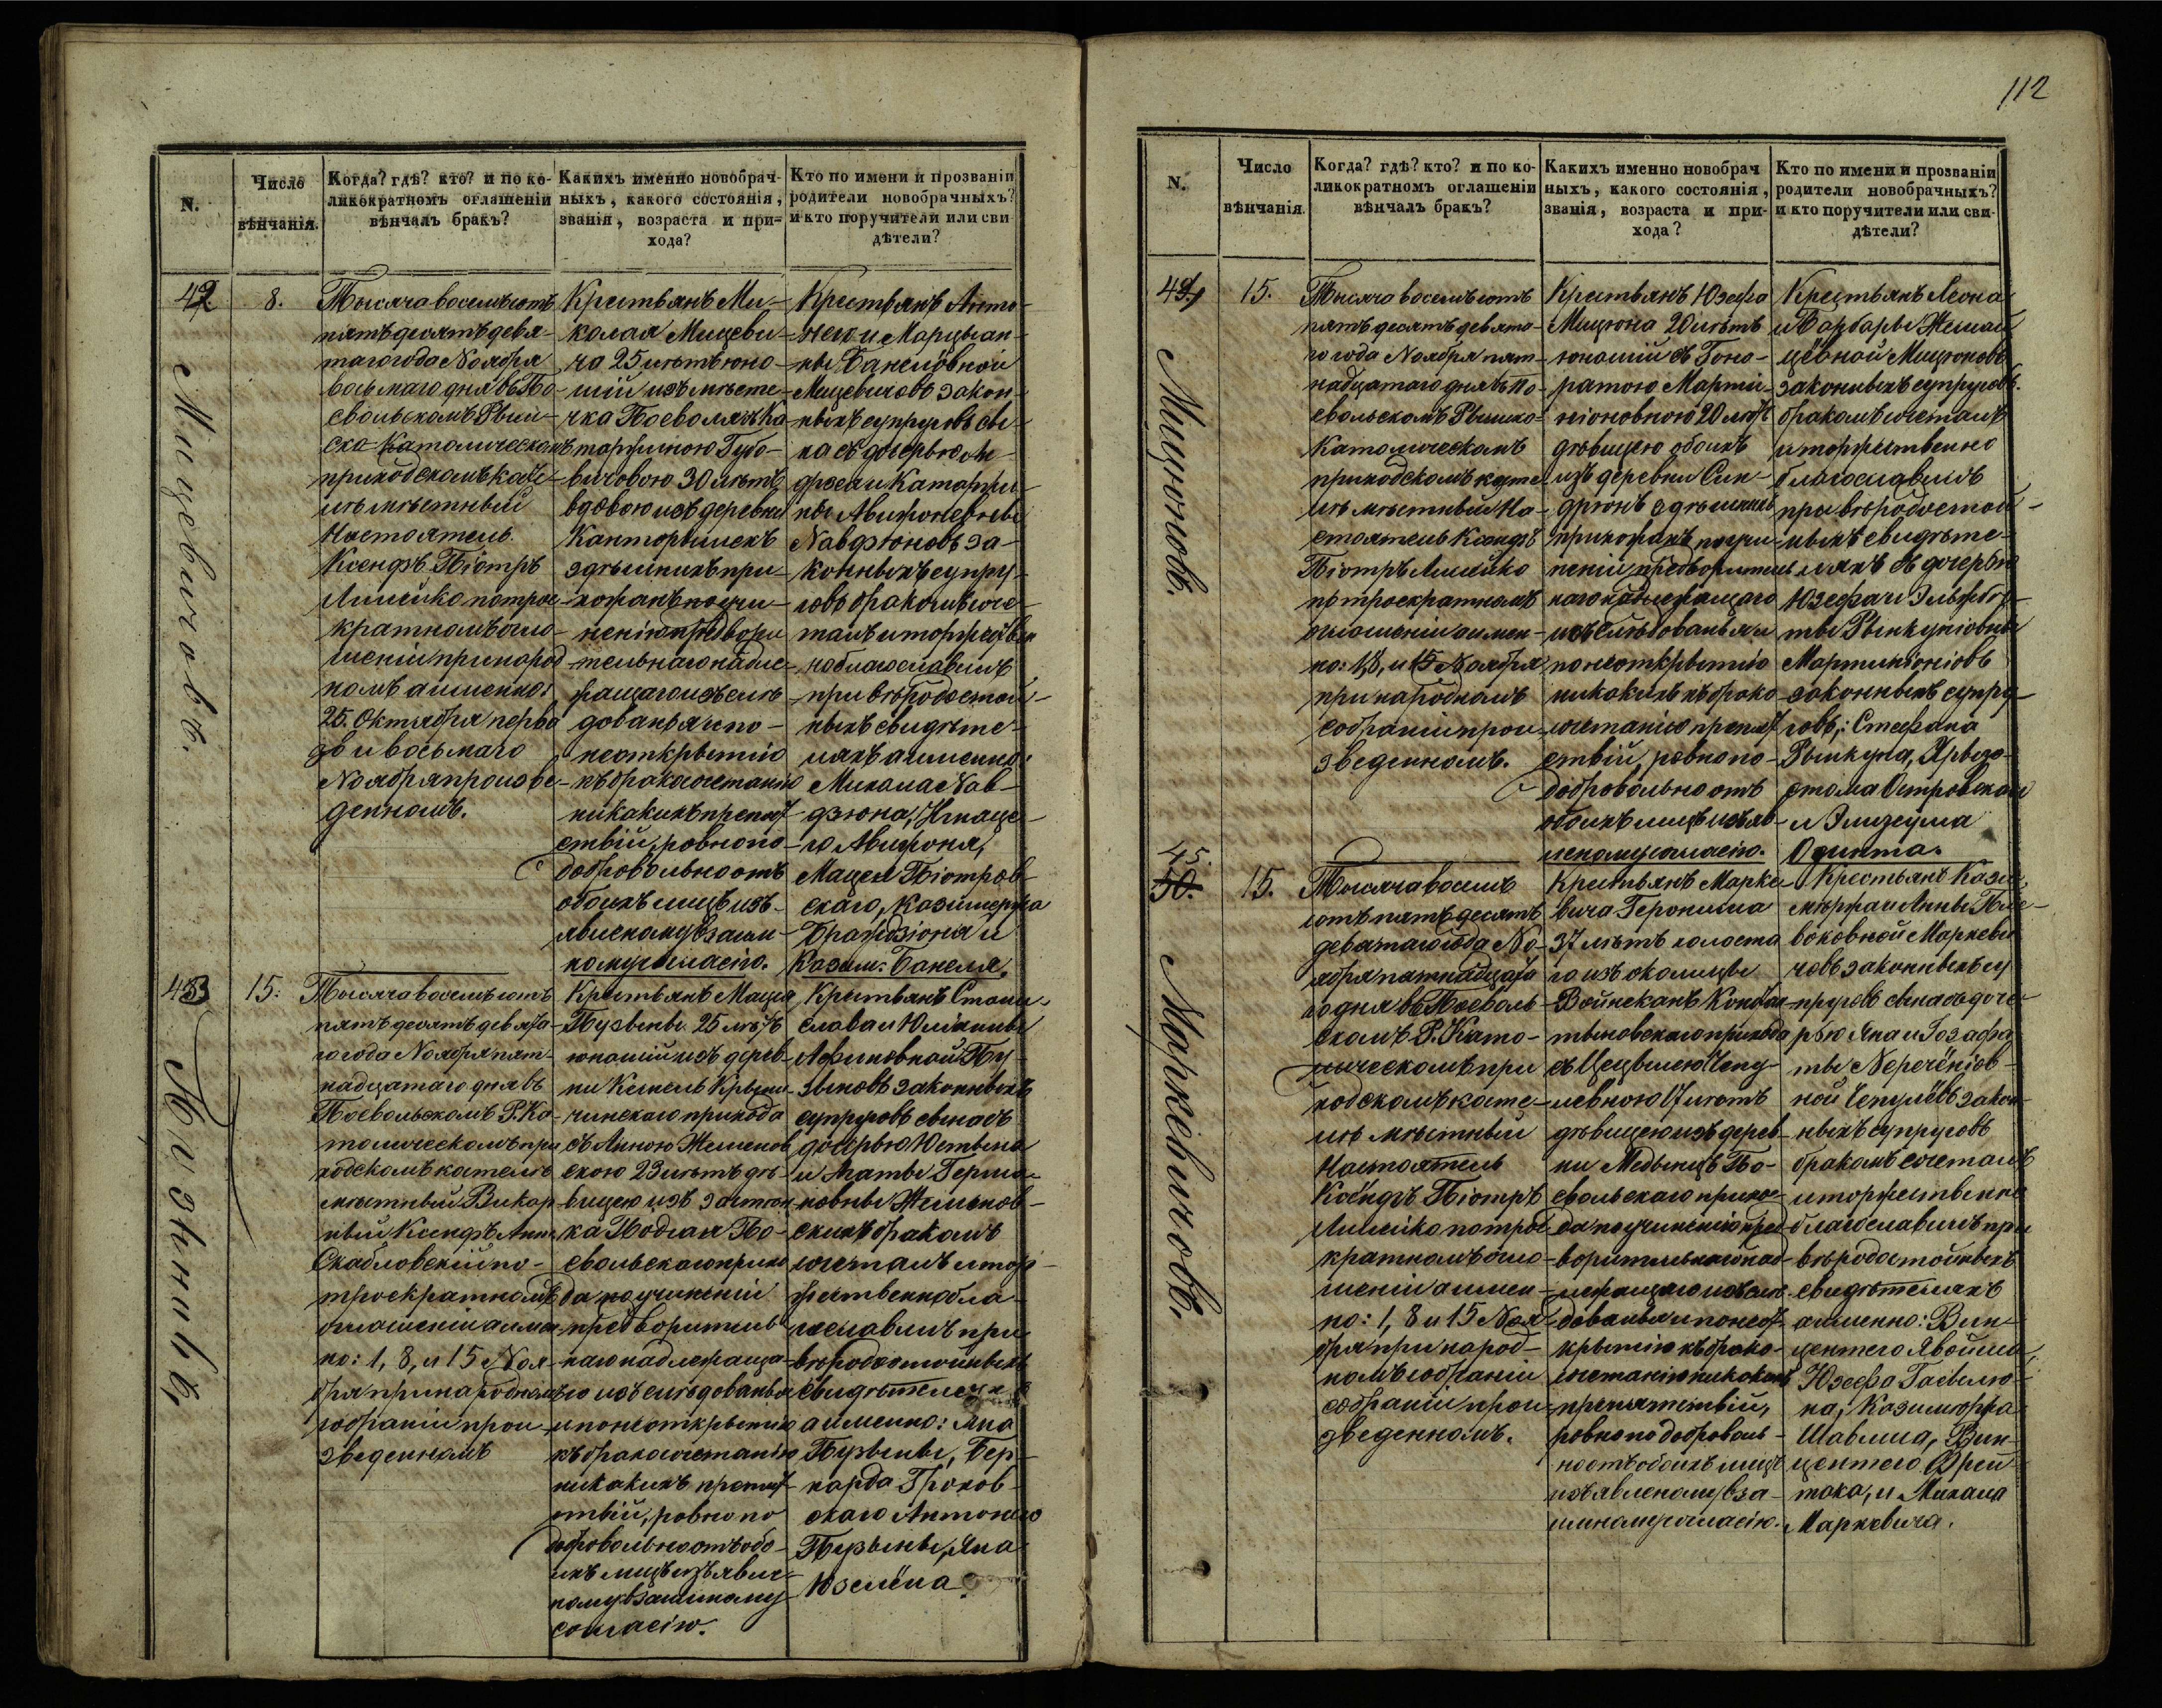 N.
Число
вѣнчанія.
Когда? гдѣ? кто? и по ко-
ликократномъ оглашеніи
вѣнчалъ бракъ?
Какихъ именно новобрач-
ныхъ, какого состоянія,
званія, возраста и при-
хода?
Кто по имени и прозванію
родители новобрачныхъ?
и кто поручители или сви
дѣтели?
42
Мицевичовъ.
8.
Тысяча восемьсотъ
пятьдесятъ девя-
таго года Ноября
восьмаго дня въ По-
свольскомъ Рим-
ско-Католическомъ
приходскомъ косте-
лѣ мѣстный
Настоятель
Ксендзъ Піотръ
Лилейко по трое-
кратномъ огла-
шеніи при народ
номъ а именно:
25. Октября перва
го и восьмаго
Ноября произве-
денномъ.
Крестьянъ Ми-
колая Мицеви-
ча 25 лѣтъ юно-
шій изъ мѣсте-
чка Посволя съ Ка
таржиною Губо-
вичовою 30 лѣтъ
вдовою изъ деревни
Канторышекъ
здѣшнихъ при-
хожанъ по учи-
неніи предвори
тельнаго надле-
жащаго изслѣ
дованья и по
неоткрытію
къ бракосочетанію
никакихъ препят
ствій, ровно по
добровольно отъ
обоихъ лицъ изъ-
явленому взаим-
ному согласію.
Крестьянъ Анто-
него и Марцыан-
ны Банелёвной
Мицевичовъ закон-
ныхъ супруговъ сы-
на съ дочерью Ан-
држея и Катаржи-
ны Авижонёвны
Навдзюновъ за-
конныхъ супру-
говъ бракомъ соче-
талъ и торжествен
но благославилъ
при вѣродостой-
ныхъ свидѣте-
ляхъ а именно:
Михала Нав-
дзюна, Игнаце-
го Авижоня,
Мацея Піотров-
скаго, Казимержа
Бражdзіоня и
Казим: Банеля.
43
Пузынивъ,
15.
Тысяча восемьсотъ
пятьдесятъ девята
го года Ноября пят-
надцатаго дня въ
Посвольскомъ Р. Ка-
толическомъ при
ходскомъ костелѣ
мѣстный Викар
ный Ксендзъ Анто
Скабловскій по-
троекратномъ
оглашеніи а имен
но: 1, 8, и 15 Ноя-
бря при народномъ
собраніи прои
зведенномъ
Крестьянъ Мацея
Пузыны 25 лѣтъ
юношій изъ дерев-
ни Кемель Крыни-
чинскаго прихода
съ Анною Желенов
скою 23 лѣтъ дѣ-
вицею изъ застен
ка Подгая По-
свольскаго прихо
да по учиненіи
предворитель
наго надлежаща
го изслѣдованья
и по неоткрытію
къ бракосочетанію
никакихъ препят
ствій, ровно по
добровольно отъ обо-
ихъ лицъ изъявле-
ному взаимному
согласію.
Крестьянъ Стани
слава и Юліанны
Афиковной Пу-
зыновъ законныхъ
супруговъ сына съ
дочерью Юстына
и Агаты Герма-
новны Желенов-
скихъ бракомъ
сочеталъ и тор-
жественно бла
гославилъ при
вѣродостойныхъ
свидѣтеляхъ
а именно: Яна
Пузыны, Бер-
нарда Гронов
скаго Антонего
Пузыны, Яна
Юзелёна.
112
N.
Число
вѣнчанія.
Когда? гдѣ? кто? и по ко-
ликократномъ оглашеніи
вѣнчалъ бракъ?
Какихъ именно новобрач
ныхъ, какого состоянія,
званія, возраста и при-
хода?
Кто по имени и прозванію
родители новобрачныхъ?
и кто поручители или сви-
дѣтели?
44
Мицюновъ.
15.
Тысяча восемьсотъ
пятьдесятъ девята-
го года Ноября пят-
надцатаго дня въ По-
свольскомъ Рымско-
Католическомъ
приходскомъ косте
лѣ мѣстный На-
стоятель Ксендзъ
Піотръ Лилейко
по троекратномъ
оглашеніи а имен-
но: 1, 8, и 15 Ноября
при народномъ
собраніи прои
зведенномъ.
Крестьянъ Юзефа
Мицюна 20 лѣтъ
юношій съ Гоно-
ратою Марти-
ніоновною 20 лѣтъ
дѣвицею обоихъ
изъ деревни Син-
дріонъ здѣшнихъ
прихожанъ по учи-
неніи предворитель
наго надлежащаго
изслѣдованья и
по неоткрытію
никакихъ къ брако
сочетанію препят
ствій, ровно по-
добровольно отъ
обоихъ лицъ изъяв-
леному согласію.
Крестьянъ Леона
и Барбары Жемай
цёвной Мицюновъ
законныхъ супруговъ.
бракомъ сочеталъ
и торжественно
благославилъ
при вѣродостой-
ныхъ свидѣте-
ляхъ съ дочерью
Юзефа и Эльжбѣ-
ты Рынкуніовны
Мартиніоніовъ
законныхъ супру
говъ,: Стефана
Рынкуна, Хрызо-
стома Островскаго
и Элизеуша
Одинта.
45.
50.
Маркевичовъ.
15.
Тысяча восемь
сотъ пятьдесятъ
девятаго года Но-
ября пятнадцата
го дня въ Посволь-
скомъ Р. Като-
лическомъ при
ходскомъ косте-
лѣ мѣстный
Настоятель
Ксендзъ Піотръ
Лилейко по трое
кратномъ огла-
шеніи а имен-
но: 1, 8 и 15 Ноя-
бря при народ-
номъ собраніи
собраніи прои
зведенномъ.
Крестьянъ Марке-
вича Геронима
37 лѣтъ холоста
го изъ околицы
Войнеканъ Конста-
тыновскаго прихода
съ Цецылею Чепу-
лёвною 17 лѣтъ
дѣвицею изъ дерев-
ни Медынцъ По-
свольскаго прихо-
да по учиненію пред
ворительнаго над-
лежащаго изслѣ
дованья и по неот
крытію къ брако-
сочетанію никакихъ
препятствій,
ровно по доброволь-
но отъ обоихъ лицъ
изъявленому вза-
имному согласію.
Крестьянъ Кази
мѣржа и Анны Пле-
воковной Маркеви
човъ законныхъ су
пруговъ сына съ доче-
рью Яна и Гозафа
ты Неречёніов-
ной Чепулёвъ закон
ныхъ супруговъ
бракомъ сочеталъ
и торжественно
благославилъ при
вѣродостойныхъ
свидѣтеляхъ
а именно: Вин-
центего Явойша,
Юзефа Гасвлю-
на, Казимержа
Шавлиша, Вин
центего Орей
тока, и Михала
Маркевича.